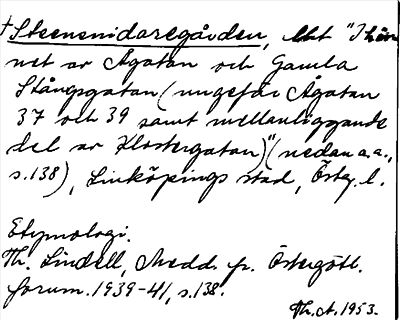 † Steensnidaregården, "I hör-
net av Ågatan och Gamla
Stångsgatan (ungefär Ågatan
37 och 39 samt mellanliggande
del av Klostergatan)" (nedan a.a.,
s.138), Linköpings stad, Östg. l.
Etymologi.
Th. Lindell, Medd. fr. Östergötl.
fornm. 1939-41, s.138.
Th. A. 1953.